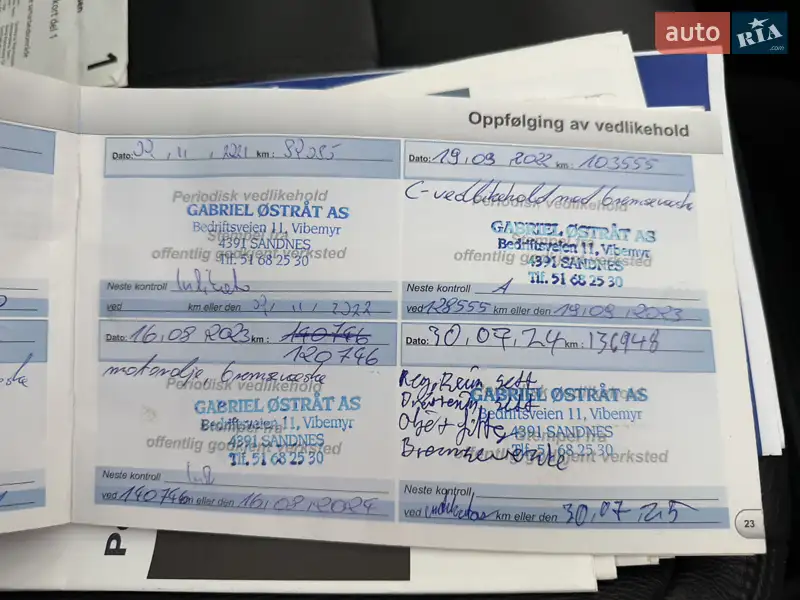 kort del 1
1
auto
RIA
.com
Oppfølging av vedlikehold
Dato: 11 . 2021 km:
Periodisk vedlikehold
GABRIEL ØSTRÅT AS
Bedriftsveien 11, Vibemyr
Stempel fra
4391 SANDNES
offentlig godkjent verksted
Tlf. 51 68 25 30
Neste kontroll
ved km eller den 11 . 2022
Dato: 19.09.2022 km: 103555
C-vedlikehold med bremsevæske
Periodisk vedlikehold
GABRIEL ØSTRÅT AS
Bedriftsveien 11, Vibemyr
4391 SANDNES
offentlig godkjent verksted
Tlf. 51 68 25 30
Neste kontroll A
ved 128555 km eller den 19.09.2023
Dato: 16.08 2023 km: 140746
120746
motorolje bremsevæske
Periodisk vedlikehold
GABRIEL ØSTRÅT AS
Bedriftsveien 11, Vibemyr
Stempel fra
4391 SANDNES
offentlig godkjent verksted
Tlf. 51 68 25 30
Neste kontroll
ved 140746 km eller den 16.08.2024
Dato: 30.07.24 km: 136948
Reg. Reim sett
sett
GABRIEL ØSTRÅT AS
Bedriftsveien 11, Vibemyr
Olje + filter
4391 SANDNES
Stempel fra
offentlig godkjent verksted
Tlf. 51 68 25 30
Neste kontroll
ved km eller den 30.07.25
23